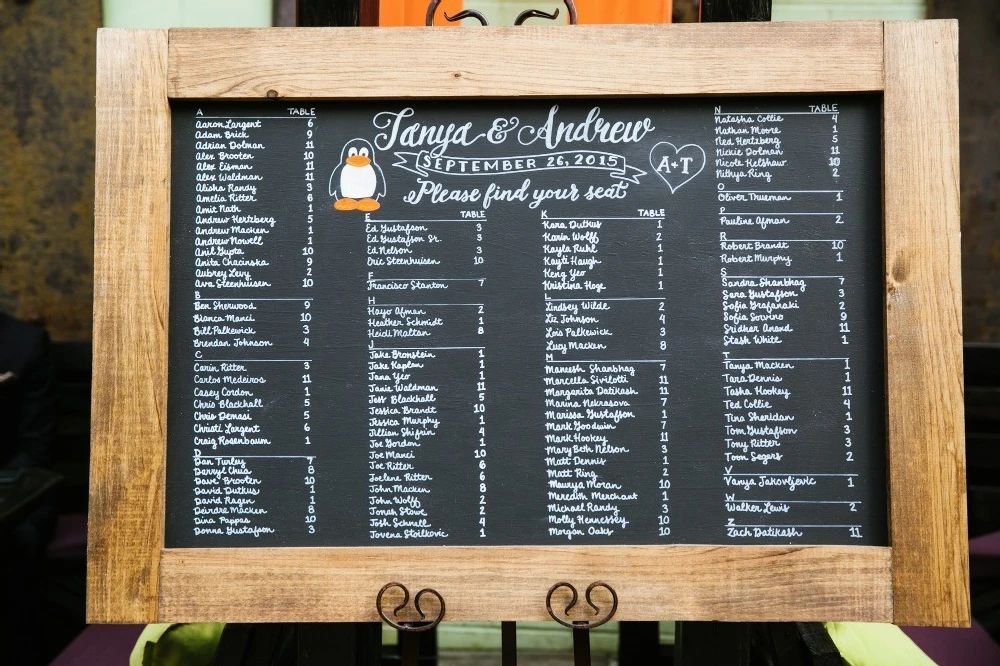 Tanya & Andrew
SEPTEMBER 26, 2015
A+T
Please find your seat
A TABLE
Aaron Largent 6
Adam Brick 9
Adrian Dolman 11
Alex Brooten 10
Alex Eisman 11
Alex Waldman 11
Alisha Randy 3
Amelia Ritter 6
Amit Nath 1
Andrew Hertzberg 5
Andrew Macken 1
Andrew Nowell 1
Anil Gupta 10
Anita Chacinska 9
Aubrey Levy 2
Ava Steenhuisen 10
B
Ben Sherwood 9
Bianca Manci 10
Bill Palkewick 3
Brendan Johnson 4
C
Carin Ritter 3
Carlos Medeiros 11
Casey Cordon 1
Chris Blackhall 5
Chris Demasi 5
Christi Largent 6
Craig Rosenbaum 1
D
Dan Turley 7
Darryl Chua 8
Dave Brooten 10
David Dutkus 1
David Ragen 1
Deirdre Macken 8
Dina Pappas 10
Donna Gustafson 3
E TABLE
Ed Gustafson 3
Ed Gustafson Sr. 3
Ed Nelson 3
Eric Steenhuisen 10
F
Francisco Stanton 7
H
Hayo Afman 2
Heather Schmidt 1
Heidi Maltan 8
J
Jake Bronstein 1
Jake Kaplan 1
Jana Yeo 1
Janie Waldman 11
Jess Blackhall 5
Jessica Brandt 10
Jessica Murphy 1
Jillian Shifrin 4
Joe Gordon 1
Joe Manci 10
Joe Ritter 6
Joelene Ritter 6
John Macken 8
John Wolff 2
Jonah Stowe 2
Josh Schnell 4
Jovena Stoilkovic 1
K TABLE
Kara Dutkus 1
Karin Wolff 2
Kayla Ruhl 1
Kayti Haugh 1
Keng Yeo 1
Kristina Hoge 1
L
Lindsey Wilde 2
Liz Johnson 4
Lois Palkewick 3
Lucy Macken 8
M
Maneesh Shanbhag 7
Marcella Sivilotti 11
Margarita Datikash 11
Marina Nekrasova 7
Marissa Gustafson 1
Mark Goodwin 7
Mark Hookey 11
Mary Beth Nelson 3
Matt Dennis 1
Matt Ring 2
Maurya Moran 10
Meredith Merchant 1
Michael Randy 3
Molly Hennessey 10
Morgan Oaks 10
N TABLE
Natasha Collie 4
Nathan Moore 1
Ned Hertzberg 5
Nickie Dolman 11
Nicole Kelshaw 10
Nithya Ring 2
O
Oliver Trueman 1
P
Pauline Afman 2
R
Robert Brandt 10
Robert Murphy 1
S
Sandra Shanbhag 7
Sara Gustafson 3
Sofia Grafanaki 2
Sofia Sorvino 9
Sridher Anand 11
Stash White 1
T
Tanya Macken 1
Tara Dennis 1
Tasha Hookey 11
Ted Collie 4
Tina Sheridan 1
Tom Gustafson 3
Tony Ritter 3
Toon Segars 2
V
Vanya Jakovljevic 1
W
Walker Lewis 2
Z
Zach Datikash 11